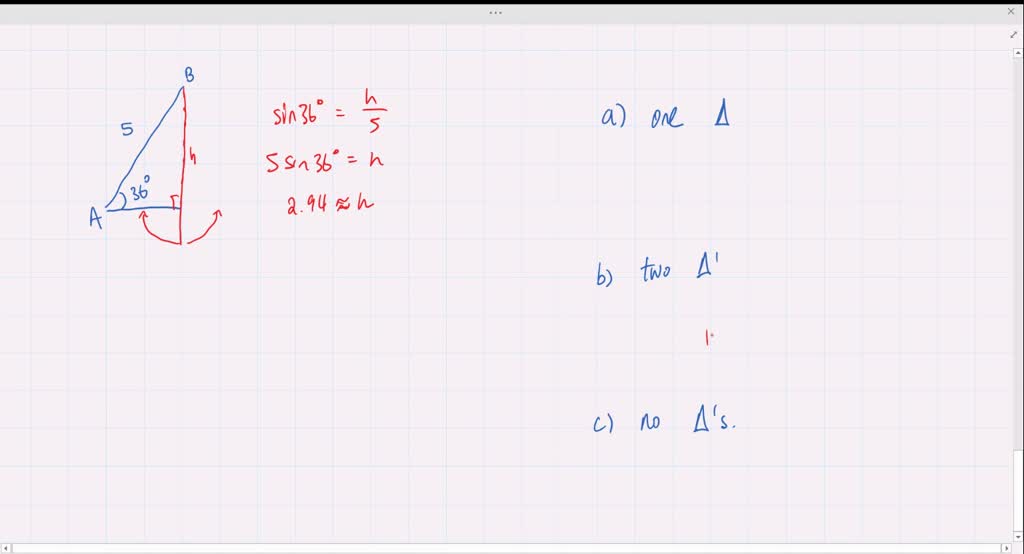 B
5
h
36°
A
sin36° = h/5
5 sin36° = h
2.94 ≈ h
a) one Δ
b) two Δ'
c) no Δ's.